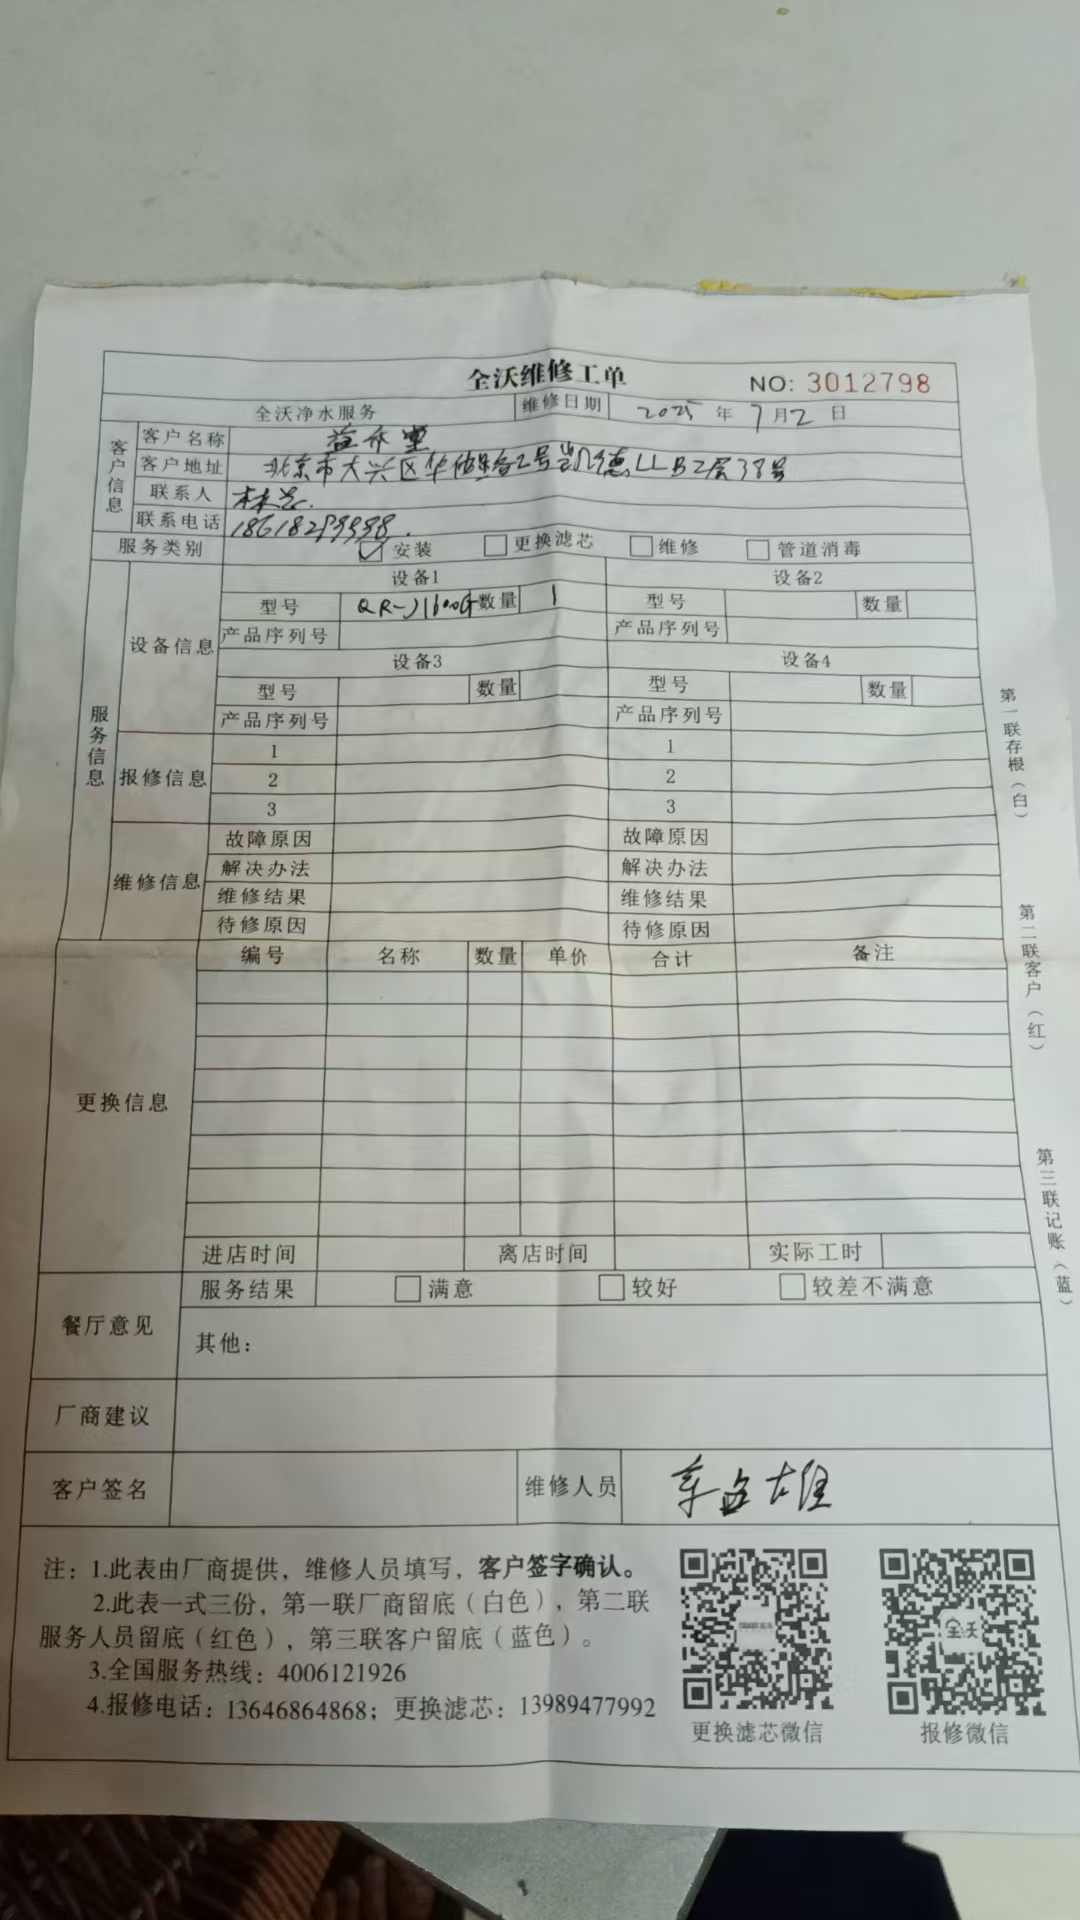 全沃维修工单 NO: 3012798
全沃净水服务 维修日期 2025 年 7 月 2 日
客户信息
客户名称 益禾堂
客户地址 北京市大兴区 2号凯德LLB2层38号
联系人 林
联系电话
服务类别 安装 更换滤芯 维修 管道消毒
服务信息
设备信息
设备1 设备2
型号 QR-J1600G 数量 1 型号 数量
产品序列号 产品序列号
设备3 设备4
型号 数量 型号 数量
产品序列号 产品序列号
报修信息
1 1
2 2
3 3
维修信息
故障原因 故障原因
解决办法 解决办法
维修结果 维修结果
待修原因 待修原因
更换信息
编号 名称 数量 单价 合计 备注
进店时间 离店时间 实际工时
餐厅意见
服务结果 满意 较好 较差不满意
其他：
厂商建议
客户签名 维修人员
注：1.此表由厂商提供，维修人员填写，客户签字确认。
2.此表一式三份，第一联厂商留底（白色），第二联
服务人员留底（红色），第三联客户留底（蓝色）。
3.全国服务热线：4006121926
4.报修电话：13646864868；更换滤芯：13989477992
更换滤芯微信 报修微信
第一联存根（白）
第二联客户（红）
第三联记账（蓝）